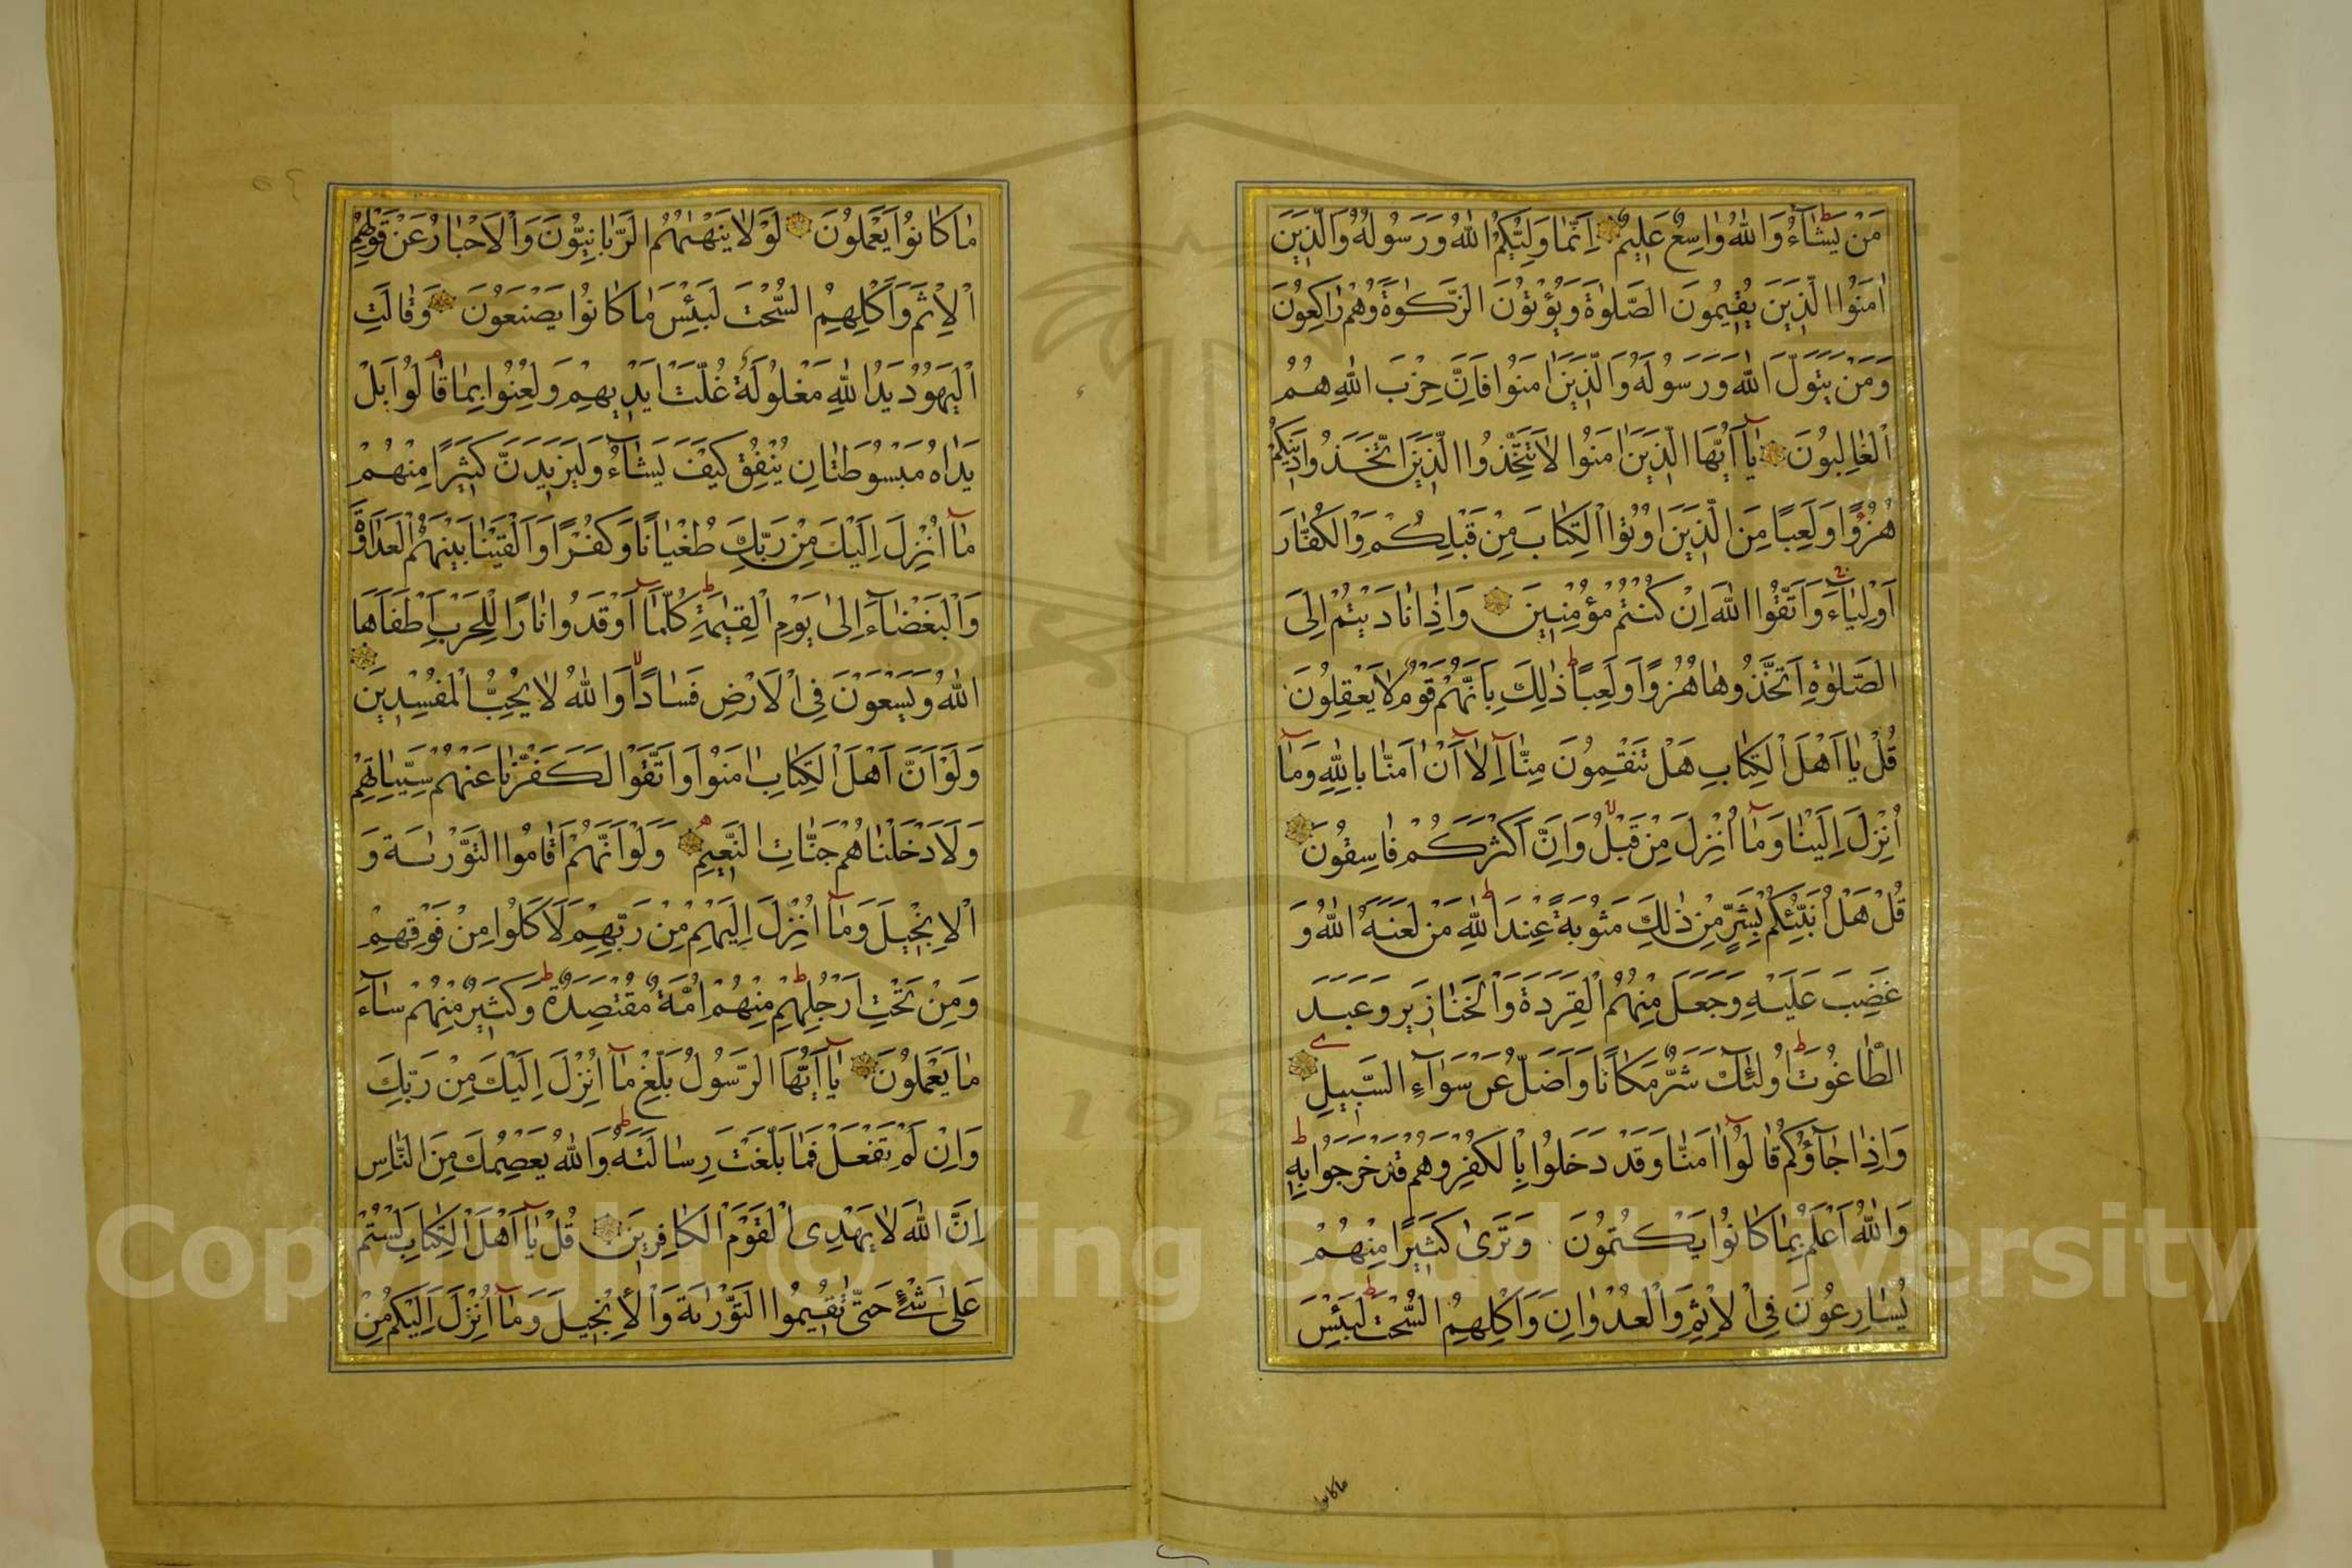 مَنْ يَشَٓاءُ وَاللّٰهُ وَاسِعٌ عَلِيمٌ اِنَّمَا وَلِيُّكُمُ اللّٰهُ وَرَسُولُهُ وَالَّذِينَ
اٰمَنُوا الَّذِينَ يُقِيمُونَ الصَّلٰوةَ وَيُؤْتُونَ الزَّكٰوةَ وَهُمْ رَاكِعُونَ
وَمَنْ يَتَوَلَّ اللّٰهَ وَرَسُولَهُ وَالَّذِينَ اٰمَنُوا فَاِنَّ حِزْبَ اللّٰهِ هُمُ
الْغَالِبُونَ يَٓا اَيُّهَا الَّذِينَ اٰمَنُوا لَا تَتَّخِذُوا الَّذِينَ اتَّخَذُوا دِينَكُمْ
هُزُوًا وَلَعِبًا مِنَ الَّذِينَ اُوتُوا الْكِتَابَ مِنْ قَبْلِكُمْ وَالْكُفَّارَ
اَوْلِيَٓاءَ وَاتَّقُوا اللّٰهَ اِنْ كُنْتُمْ مُؤْمِنِينَ وَاِذَا نَادَيْتُمْ اِلَى
الصَّلٰوةِ اتَّخَذُوهَا هُزُوًا وَلَعِبًا ذٰلِكَ بِاَنَّهُمْ قَوْمٌ لَا يَعْقِلُونَ
قُلْ يَا اَهْلَ الْكِتَابِ هَلْ تَنْقِمُونَ مِنَّٓا اِلَّٓا اَنْ اٰمَنَّا بِاللّٰهِ وَمَٓا
اُنْزِلَ اِلَيْنَا وَمَٓا اُنْزِلَ مِنْ قَبْلُ وَاَنَّ اَكْثَرَكُمْ فَاسِقُونَ
قُلْ هَلْ اُنَبِّئُكُمْ بِشَرٍّ مِنْ ذٰلِكَ مَثُوبَةً عِنْدَ اللّٰهِ مَنْ لَعَنَهُ اللّٰهُ وَ
غَضِبَ عَلَيْهِ وَجَعَلَ مِنْهُمُ الْقِرَدَةَ وَالْخَنَازِيرَ وَعَبَدَ
الطَّاغُوتَ اُولٰٓئِكَ شَرٌّ مَكَانًا وَاَضَلُّ عَنْ سَوَٓاءِ السَّبِيلِ
وَاِذَا جَٓاؤُكُمْ قَالُٓوا اٰمَنَّا وَقَدْ دَخَلُوا بِالْكُفْرِ وَهُمْ قَدْ خَرَجُوا بِهِ
وَاللّٰهُ اَعْلَمُ بِمَا كَانُوا يَكْتُمُونَ وَتَرٰى كَثِيرًا مِنْهُمْ
يُسَارِعُونَ فِى الْاِثْمِ وَالْعُدْوَانِ وَاَكْلِهِمُ السُّحْتَ لَبِئْسَ
ما كانوا
مَا كَانُوا يَعْمَلُونَ لَوْلَا يَنْهٰيهُمُ الرَّبَّانِيُّونَ وَالْاَحْبَارُ عَنْ قَوْلِهِمُ
الْاِثْمَ وَاَكْلِهِمُ السُّحْتَ لَبِئْسَ مَا كَانُوا يَصْنَعُونَ وَقَالَتِ
الْيَهُودُ يَدُ اللّٰهِ مَغْلُولَةٌ غُلَّتْ اَيْدِيهِمْ وَلُعِنُوا بِمَا قَالُوا بَلْ
يَدَاهُ مَبْسُوطَتَانِ يُنْفِقُ كَيْفَ يَشَٓاءُ وَلَيَزِيدَنَّ كَثِيرًا مِنْهُمْ
مَٓا اُنْزِلَ اِلَيْكَ مِنْ رَبِّكَ طُغْيَانًا وَكُفْرًا وَاَلْقَيْنَا بَيْنَهُمُ الْعَدَاوَةَ
وَالْبَغْضَٓاءَ اِلٰى يَوْمِ الْقِيٰمَةِ كُلَّمَٓا اَوْقَدُوا نَارًا لِلْحَرْبِ اَطْفَاَهَا
اللّٰهُ وَيَسْعَوْنَ فِى الْاَرْضِ فَسَادًا وَاللّٰهُ لَا يُحِبُّ الْمُفْسِدِينَ
وَلَوْ اَنَّ اَهْلَ الْكِتَابِ اٰمَنُوا وَاتَّقَوْا لَكَفَّرْنَا عَنْهُمْ سَيِّاٰتِهِمْ
وَلَاَدْخَلْنَاهُمْ جَنَّاتِ النَّعِيمِ وَلَوْ اَنَّهُمْ اَقَامُوا التَّوْرٰيةَ وَ
الْاِنْجِيلَ وَمَٓا اُنْزِلَ اِلَيْهِمْ مِنْ رَبِّهِمْ لَاَكَلُوا مِنْ فَوْقِهِمْ
وَمِنْ تَحْتِ اَرْجُلِهِمْ مِنْهُمْ اُمَّةٌ مُقْتَصِدَةٌ وَكَثِيرٌ مِنْهُمْ سَٓاءَ
مَا يَعْمَلُونَ يَٓا اَيُّهَا الرَّسُولُ بَلِّغْ مَٓا اُنْزِلَ اِلَيْكَ مِنْ رَبِّكَ
وَاِنْ لَمْ تَفْعَلْ فَمَا بَلَّغْتَ رِسَالَتَهُ وَاللّٰهُ يَعْصِمُكَ مِنَ النَّاسِ
اِنَّ اللّٰهَ لَا يَهْدِى الْقَوْمَ الْكَافِرِينَ قُلْ يَٓا اَهْلَ الْكِتَابِ لَسْتُمْ
عَلٰى شَىْءٍ حَتّٰى تُقِيمُوا التَّوْرٰيةَ وَالْاِنْجِيلَ وَمَٓا اُنْزِلَ اِلَيْكُمْ مِنْ
Copyright © King Saud University